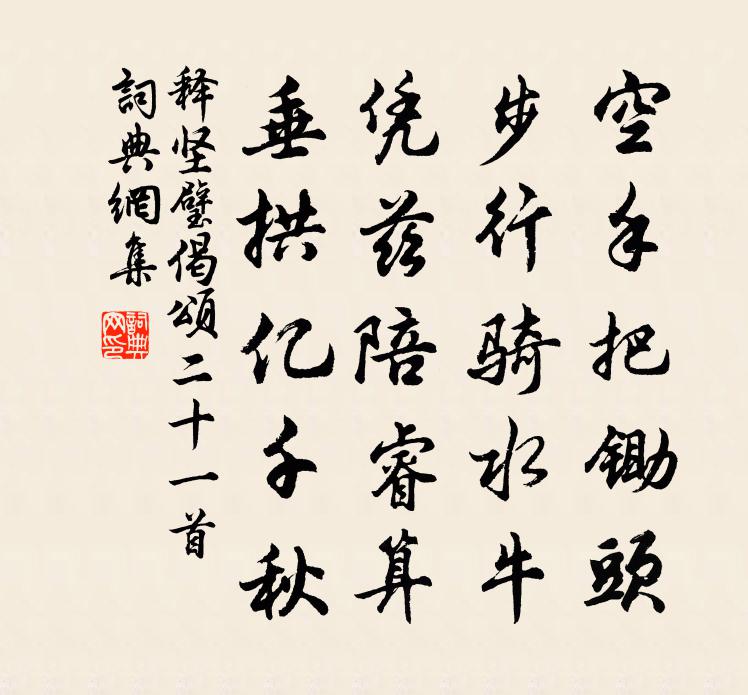 空手把鋤頭
步行骑水牛
凭茲陪睿算
垂拱亿千秋
释坚璧偈頌二十一首
詞典網集
詞典
网印